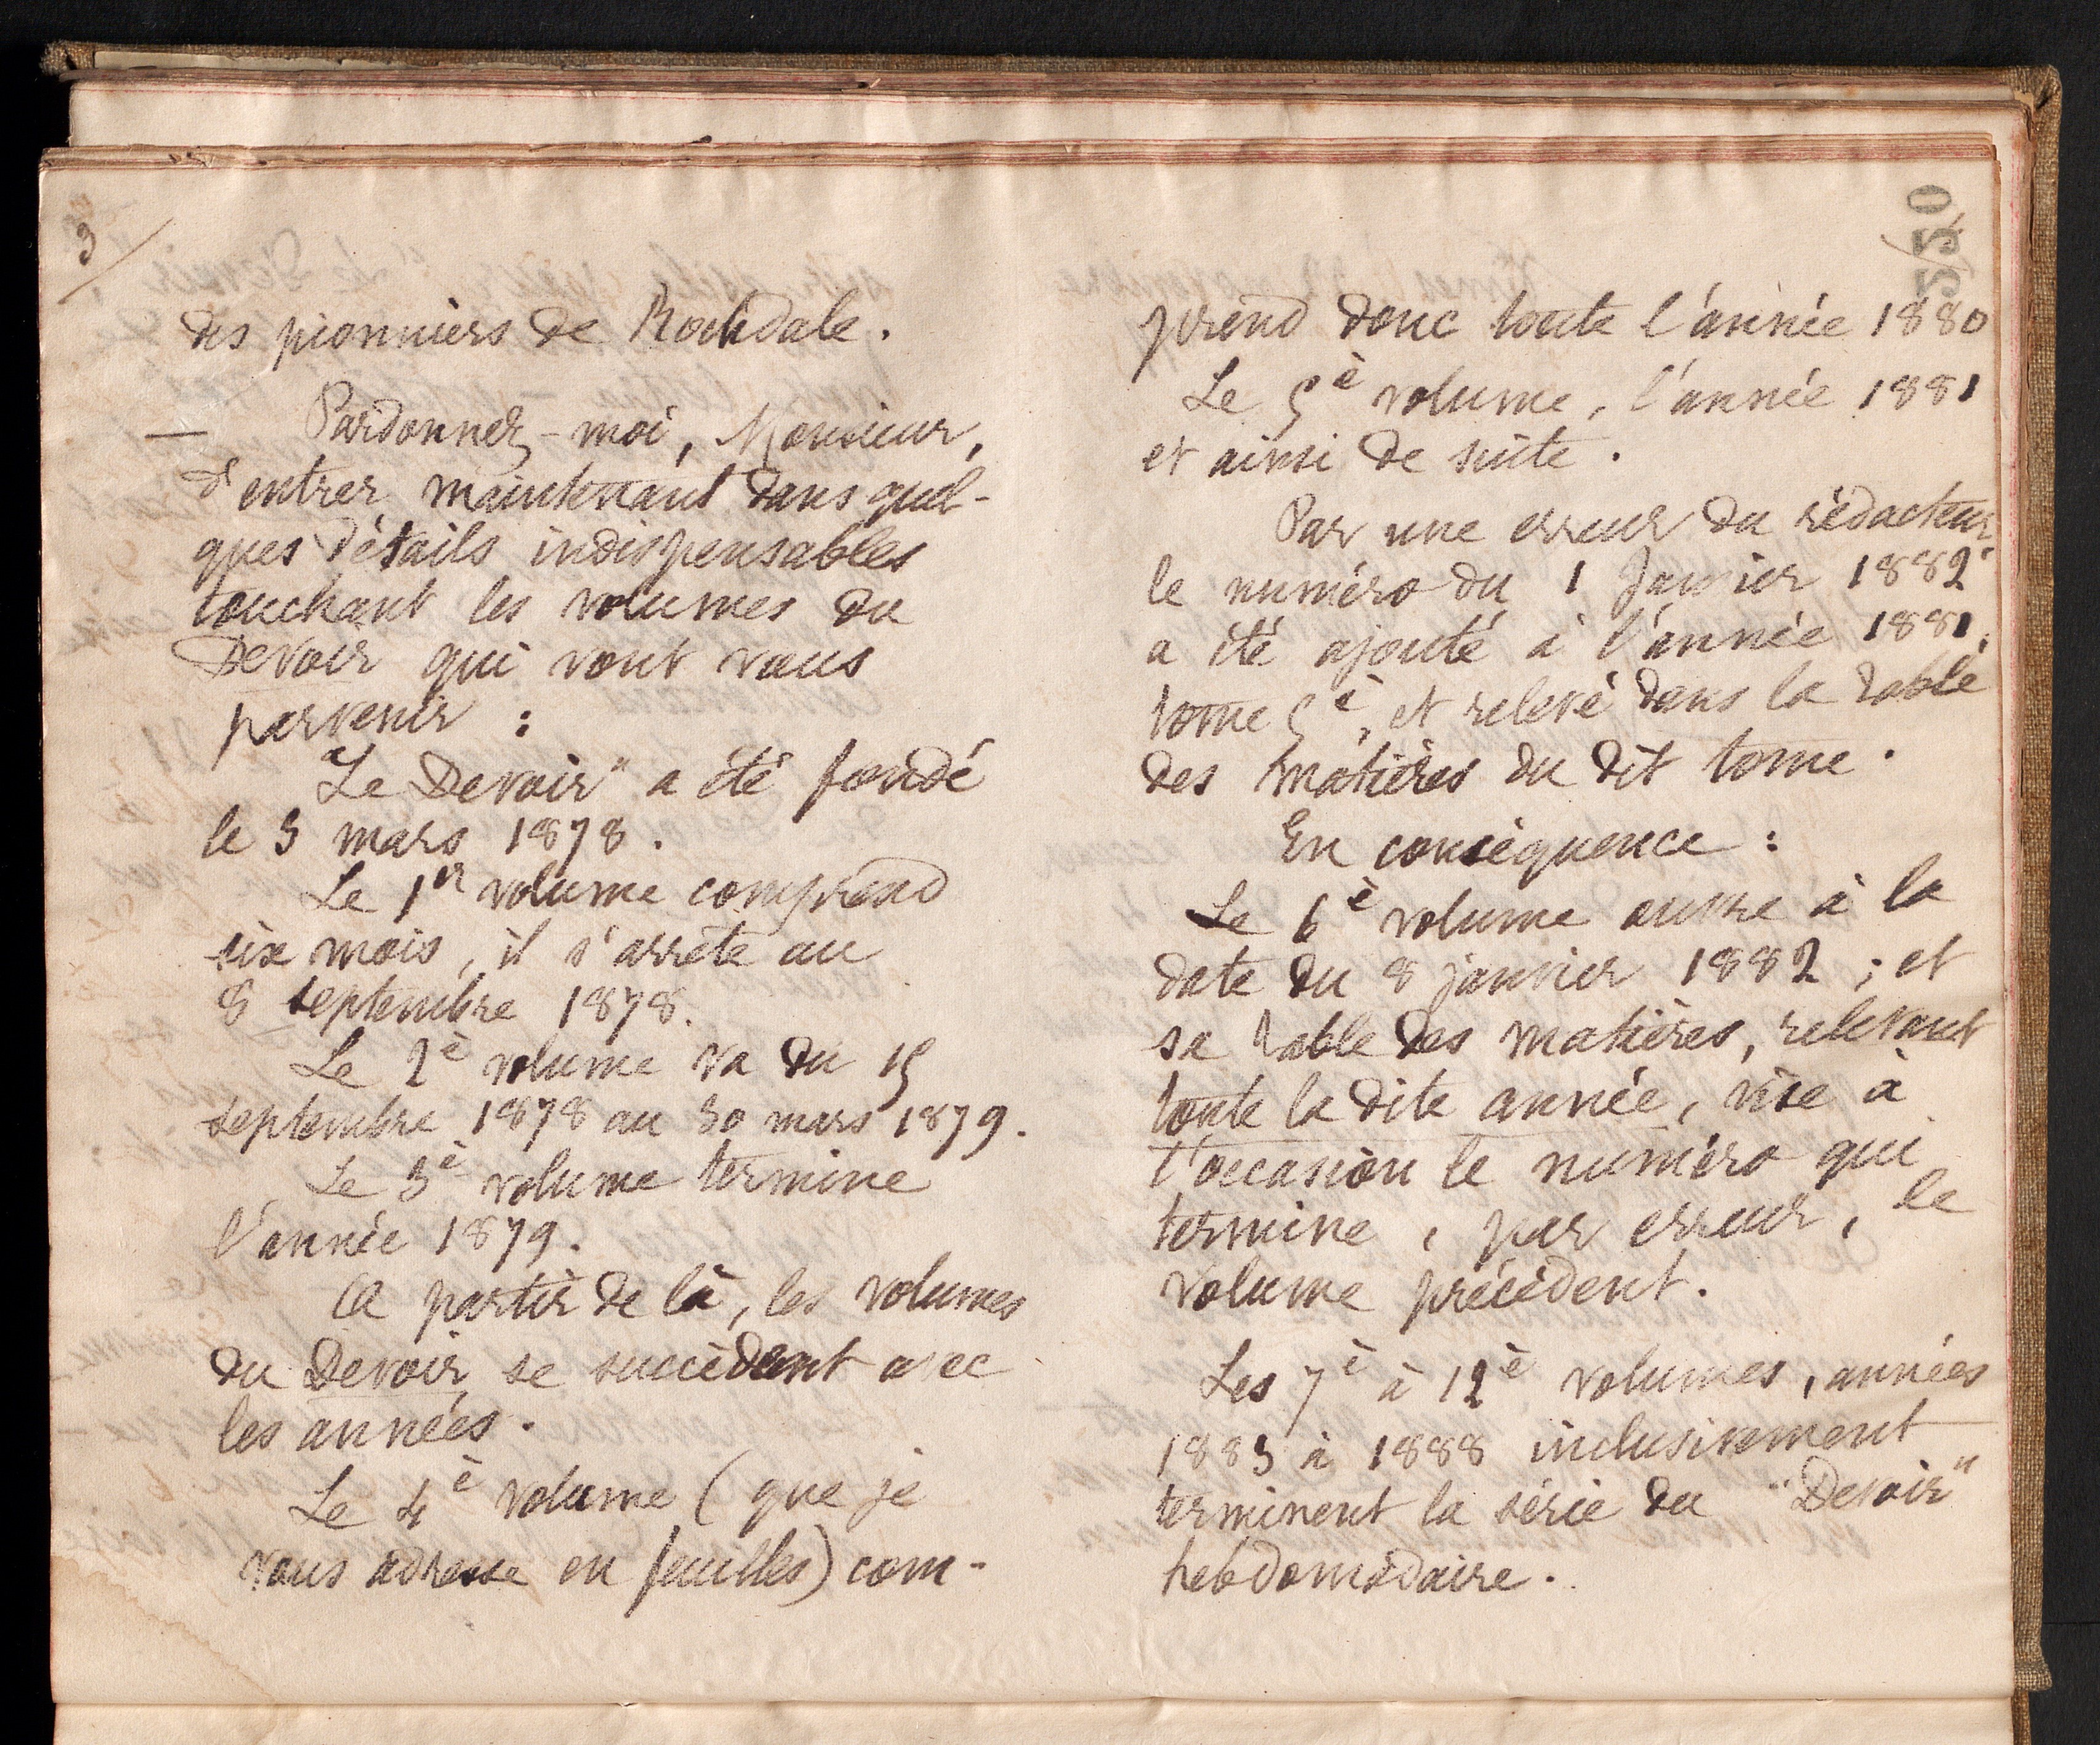 3/
des pionniers de Rochdale.
— Pardonnez-moi, Monsieur,
d'entrer maintenant dans quel-
ques détails indispensables
touchant les volumes du
Devoir qui vont vous
parvenir :
Le Devoir" a été fondé
le 3 mars 1878.
Le 1er volume comprend
six mois, il s'arrête au
8 septembre 1878.
Le 2è volume va du 15
septembre 1878 au 30 mars 1879.
Le 3è volume termine
l'année 1879.
A partir de là, les volumes
du Devoir se succèdent avec
les années.
Le 4è volume (que je
vous adresse en feuilles) com-
550
prend donc toute l'année 1880
Le 5è volume, l'année 1881
et ainsi de suite.
Par une erreur du rédacteur
le numéro du 1 Janvier 1882
a été ajouté à l'année 1881,
tome 5è, et relevé dans la table
des matières du dit tome.
En conséquence :
Le 6è volume ouvre à la
date du 8 janvier 1882 ; et
sa table des matières, relevant
toute la dite année, vise à
l'occasion le numéro qui
termine, par erreur, le
volume précédent.
Les 7è à 12è volumes, années
1883 à 1888 inclusivement
terminent la série du "Devoir"
hebdomadaire.